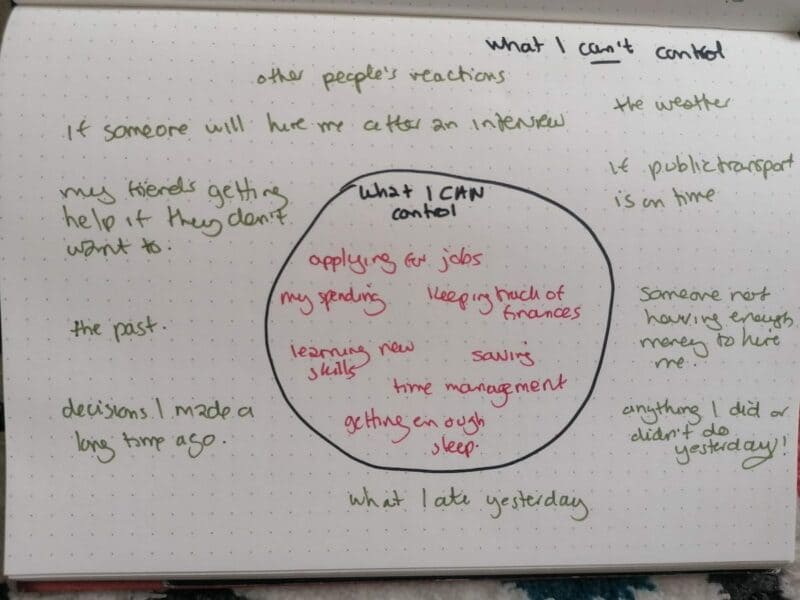 what I can't control
other people's reactions
the weather
if someone will hire me after an interview
if public transport
is on time
my friends getting
help if they don't
want to.
what I CAN
control
applying for jobs
my spending
keeping track of
finances
learning new
skills
saving
time management
getting enough
sleep.
the past.
decisions I made a
long time ago.
someone not
having enough
money to hire
me.
anything I did or
didn't do
yesterday!
what I ate yesterday